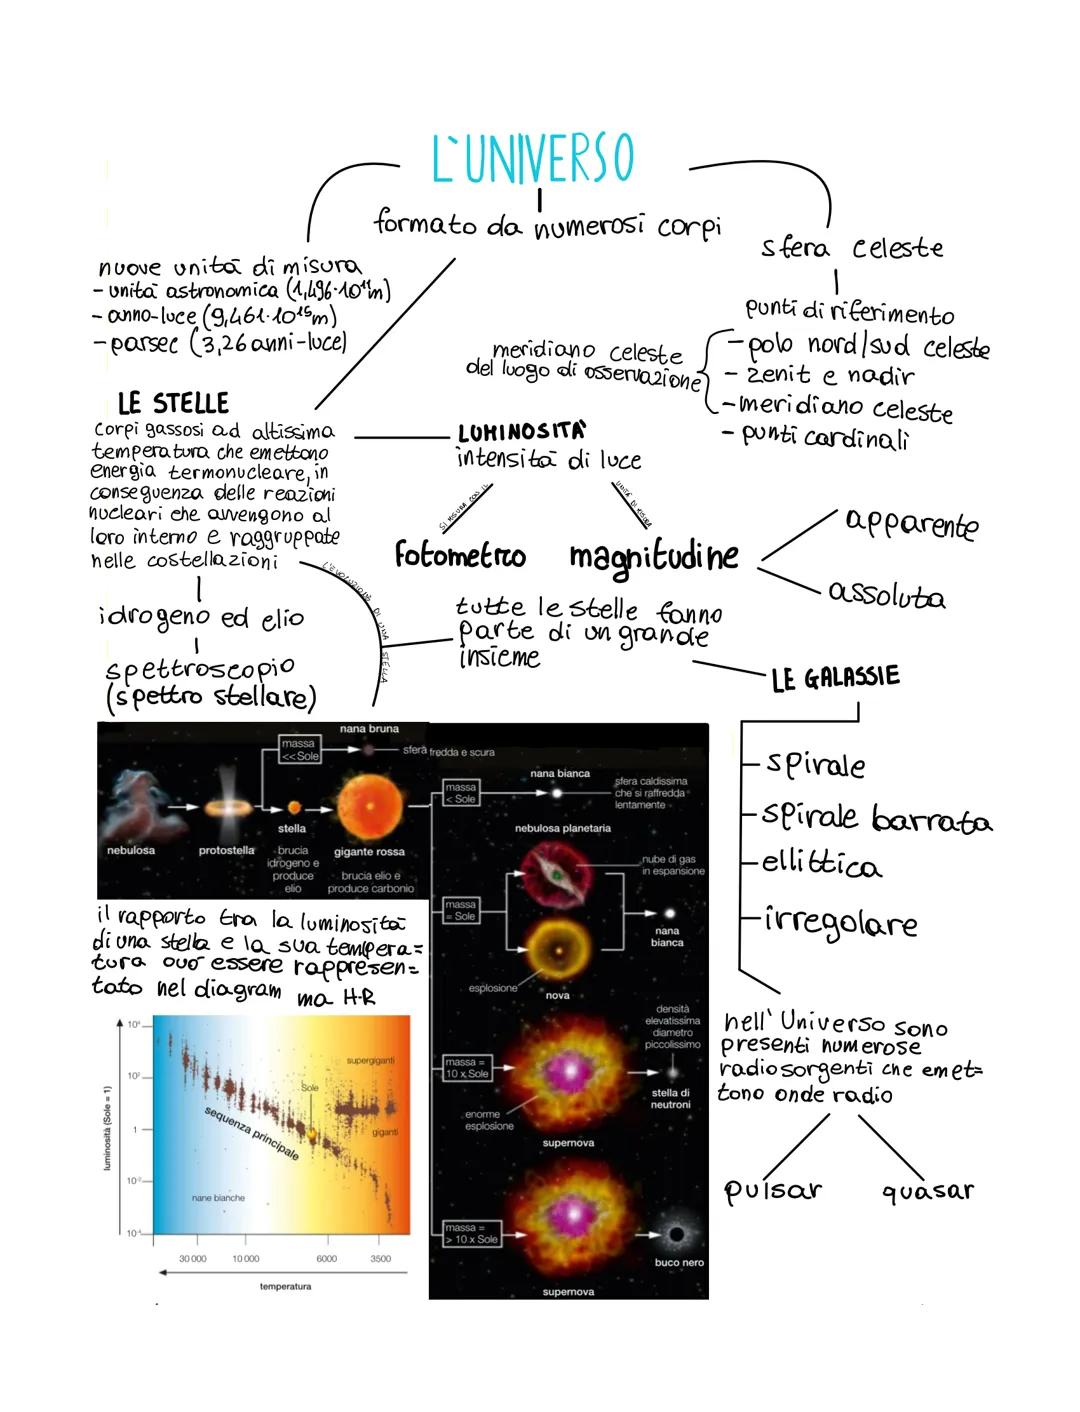 L'UNIVERSO
formato da numerosi corpi
nuove unità di misura
- unità astronomica (1,496·10¹¹m)
- anno-luce (9,461·10¹⁵m)
- parsec (3,26 anni-luce)
sfera celeste
punti di riferimento
- polo nord/sud celeste
- zenit e nadir
- meridiano celeste
- punti cardinali
meridiano celeste
del luogo di osservazione
LE STELLE
corpi gassosi ad altissima
temperatura che emettono
energia termonucleare, in
conseguenza delle reazioni
nucleari che avvengono al
loro interno e raggruppate
nelle costellazioni
idrogeno ed elio
spettroscopio
(spettro stellare)
LUMINOSITA'
intensità di luce
SI MISURA CON IL
UNITÀ DI MISURA
fotometro
magnitudine
apparente
assoluta
L'EVOLUZIONE DI UNA STELLA
tutte le stelle fanno
parte di un grande
insieme
LE GALASSIE
- spirale
- spirale barrata
- ellittica
- irregolare
nell'Universo sono
presenti numerose
radiosorgenti che emet=
tono onde radio
pulsar
quasar
nana bruna
massa
<< Sole
sfera fredda e scura
nebulosa
protostella
stella
brucia
idrogeno e
produce
elio
gigante rossa
brucia elio e
produce carbonio
massa
< Sole
nana bianca
sfera caldissima
che si raffredda
lentamente
nebulosa planetaria
nube di gas
in espansione
massa
= Sole
nana
bianca
esplosione
nova
densità
elevatissima
diametro
piccolissimo
massa =
10 x Sole
stella di
neutroni
enorme
esplosione
supernova
massa =
> 10 x Sole
buco nero
supernova
il rapporto tra la luminosità
di una stella e la sua tempera=
tura può essere rappresen=
tato nel diagram ma H-R
luminosità (Sole = 1)
10⁴
10²
1
10⁻²
10⁻⁴
supergiganti
Sole
sequenza principale
giganti
nane bianche
30 000
10 000
6000
3500
temperatura